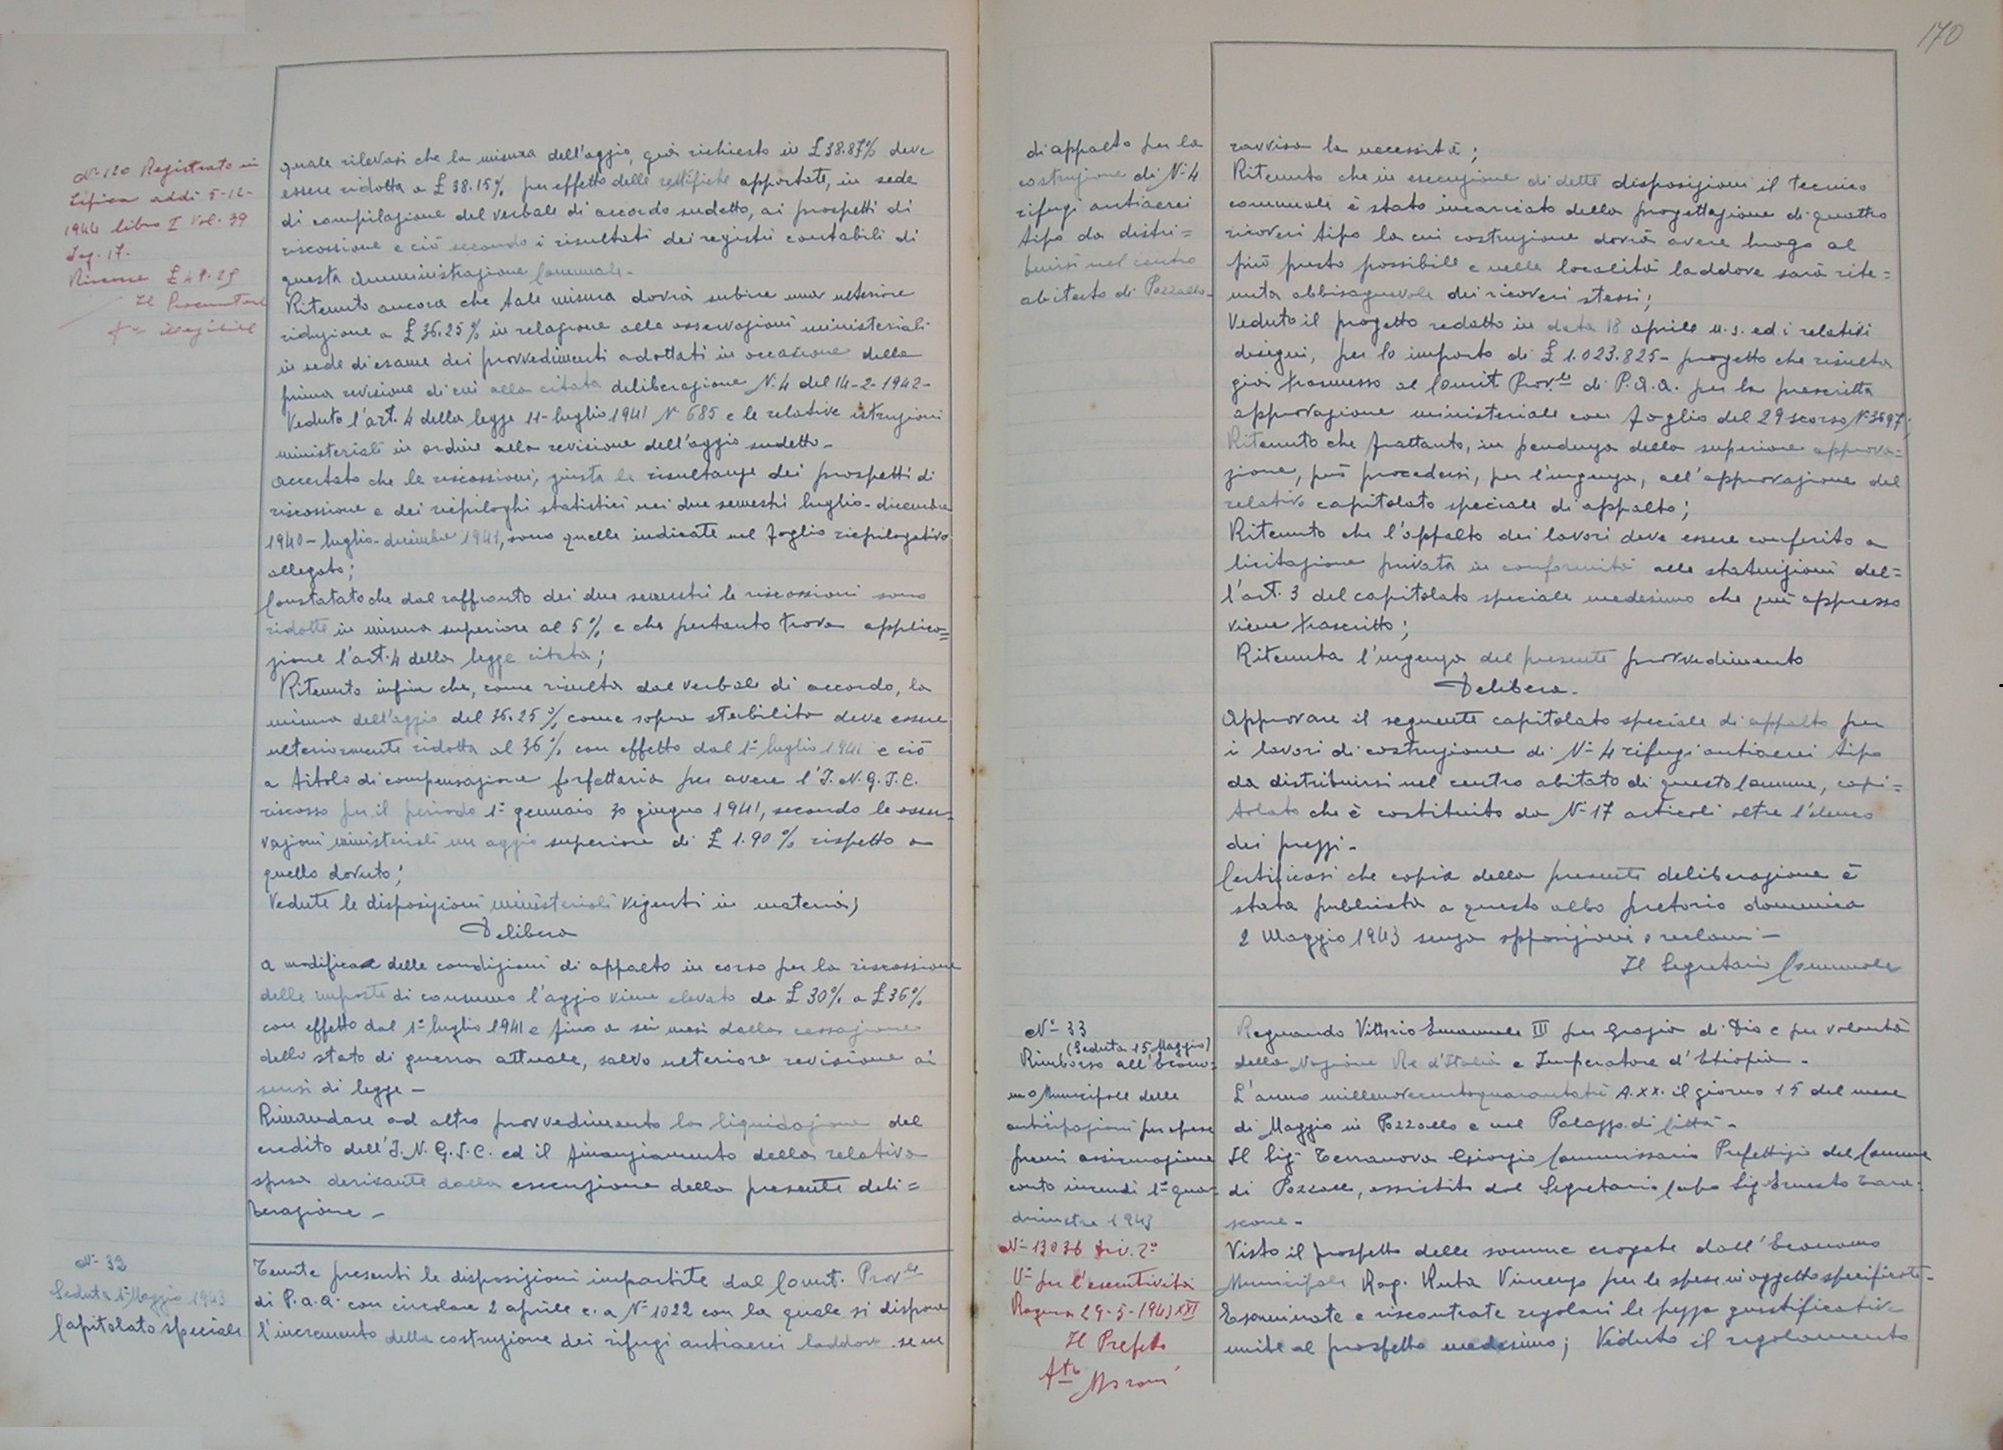 N. 120 Registrato in
addì 5-12-
1944 libro I Vol. 39
Fog. 17.
£ 48.25
Il Procuratore
f.to illegibile
quale rilevasi che la misura dell'aggio, già richiesto in £ 38.87% deve
essere ridotta a £ 38.15% per effetto delle rettifiche apportate, in sede
di compilazione del verbale di accordo sudetto, ai prospetti di
riscossione e ciò secondo i risultati dei registri contabili di
questa Amministrazione Comunale.
Ritenuto ancora che tale misura dovrà subire una ulteriore
riduzione a £ 36.25% in relazione alle osservazioni ministeriali
in sede di esame dei provvedimenti adottati in occasione della
prima revisione di cui alla citata deliberazione N. 4 del 14-2-1942-
Veduto l'art. 4 della legge 11-luglio 1941 N° 685 e le relative istruzioni
ministeriali in ordine alla revisione dell'aggio sudetto-
Accertato che le riscossioni, giusta le risultanze dei prospetti di
riscossione e dei riepiloghi statistici nei due semestri luglio-dicembre
1940-luglio-dicembre 1941, sono quelle indicate nel foglio riepilogativo
allegato;
Constatato che dal raffronto dei due semestri le riscossioni sono
ridotte in misura superiore al 5% e che pertanto trova applica=
zione l'art. 4 della legge citata;
Ritenuto infine che, come risulta dal verbale di accordo, la
misura dell'aggio del 36.25% come sopra stabilito deve essere
ulteriormente ridotta al 36% con effetto dal 1° luglio 1941 e ciò
a titolo di compensazione forfettaria per avere l'I.N.G.I.C.
riscosso per il periodo 1° gennaio 30 giugno 1941, secondo le osser-
vazioni ministeriali un aggio superiore di £ 1.90% rispetto a
quello dovuto;
Vedute le disposizioni ministeriali vigenti in materia;
Delibera
A modifica delle condizioni di appalto in corso per la riscossione
delle imposte di consumo l'aggio viene elevato da £ 30% a £ 36%
con effetto dal 1° luglio 1941 e fino a sei mesi dalla cessazione
dello stato di guerra attuale, salvo ulteriore revisione ai
sensi di legge-
Rimandare ad altro provvedimento la liquidazione del
credito dell'I.N.G.I.C. ed il finanziamento della relativa
spesa derivante dalla esecuzione della presente deli=
berazione-
N° 32
Seduta 1° Maggio 1943
Capitolato speciale
Tenute presenti le disposizioni impartite dal Comit. Prov.le
di P.a.a. con circolare 2 aprile c.a N° 1022 con la quale si dispone
l'incremento della costruzione dei rifugi antiaerei laddove se ne
170
di appalto per la
costruzione di N. 4
rifugi antiaerei
tipo da distri=
buirsi nel centro
abitato di Pozzallo-
ravvisa la necessità;
Ritenuto che in esecuzione di dette disposizioni il tecnico
comunale è stato incaricato della progettazione di quattro
ricoveri tipo la cui costruzione dovrà avere luogo al
più presto possibile e nelle località laddove sarà rite=
nuta abbisognevole dei ricoveri stessi;
Veduto il progetto redatto in data 18 aprile u.s. ed i relativi
disegni, per lo importo di £ 1.023.825- progetto che risulta
già trasmesso al Comit. Prov.le di P.a.a. per la prescritta
approvazione ministeriale con foglio del 29 scorso N. 3697;
Ritenuto che frattanto, in pendenza della superiore approva=
zione, può procedersi, per l'urgenza, all'approvazione del
relativo capitolato speciale di appalto;
Ritenuto che l'appalto dei lavori deve essere conferito a
licitazione privata in conformità alle statuizioni del=
l'art. 3 del capitolato speciale medesimo che qui appresso
viene trascritto;
Ritenuta l'urgenza del presente provvedimento
Delibera-
Approvare il seguente capitolato speciale di appalto per
i lavori di costruzione di N° 4 rifugi antiaerei tipo
da distribuirsi nel centro abitato di questo Comune, capi=
tolato che è costituito da N° 17 articoli oltre l'elenco
dei prezzi-
Certificasi che copia della presente deliberazione è
stata pubblicata a questo albo pretorio domenica
2 Maggio 1943 senza opposizioni o reclami-
Il Segretario Comunale
N° 33
(Seduta 15 Maggio)
Rimborso all'Econo=
mo Municipale delle
anticipazioni per spese
premi assicurazione
conto incendi 1° qua-
drimestre 1943
N° 13036 Div. 2a
V° per l'esecutività
Ragusa 29-5-1943 XXI
Il Prefetto
f.to
Regnando Vittorio Emanuele III per Grazia di Dio e per volontà
della Nazione Re d'Italia e Imperatore d'Etiopia-
L'anno millenovecentoquarantatrè A.XX. il giorno 15 del mese
di Maggio in Pozzallo e nel Palazzo di Città-
Il Sig. Terranova Giorgio Commissario Prefettizio del Comune
di Pozzallo, assistito dal Segretario Capo Sig. Ernesto Tara-
scone-
Visto il prospetto delle somme erogate dall'Economo
Municipale Rag. Ruta Vincenzo per le spese in oggetto specificate-
Esaminate e riscontrate regolari le pezze giustificative
unite al prospetto medesimo; Veduto il regolamento